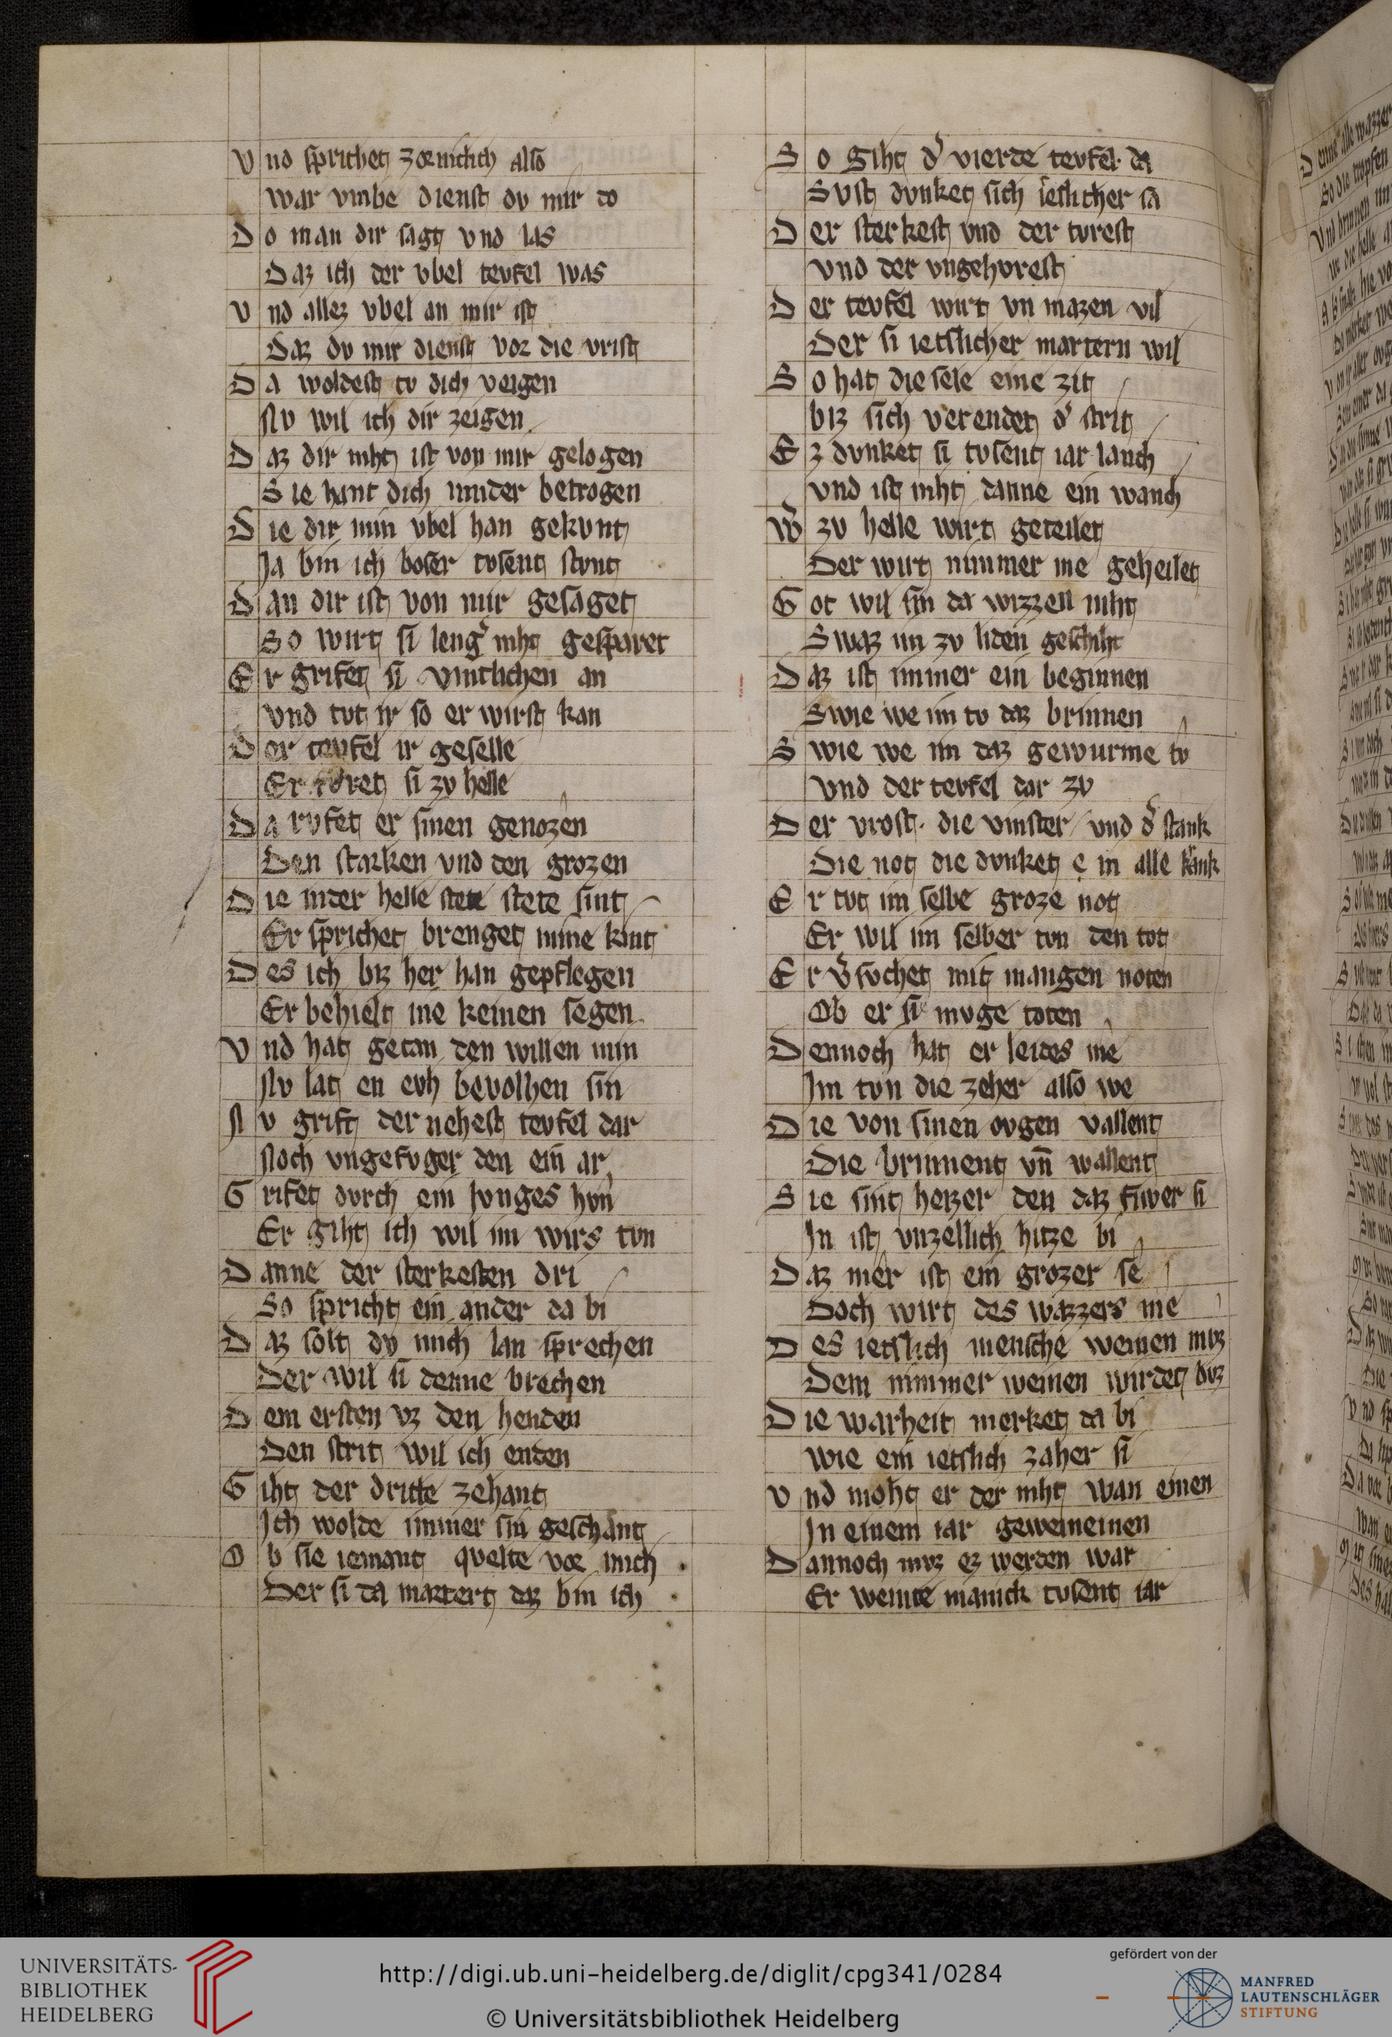 Vnd sprichet zornichlich also
War vmbe dienst dv mir do
Do man dir sagt vnd las
Daz ich der vbel tevfel was
Vnd allez vbel an mir ist
Daz dv mir dienst vor die vrist
Da woldest tv dich veigen
Nv wil ich dir zeigen
Daz dir niht ist von mir gelogen
Sie hant dich minder betrogen
Die dir min vbel han gekvnt
Ja bin ich boser tvsent stvnt
Dan dir ist von mir gesaget
So wirt si leng͛ niht gesparet
Er grifet si vintlichen an
Vnd tvt ir so er wirst kan
Der tevfel ir geselle
Er fvret si zv helle
Da rvfet er sinen genozen
Den starken vnd den grozen
Die inder helle stete sint
Er sprichet brenget mine kint
Des ich biz her han gepflegen
Er behielt me keinen segen
Vnd hat getan den willen min
Nv lat en evh bevolhen sin
Nv grift der nehest tevfel dar
Noch vngefvger den ein ar
Grifet dvrch ein Jvnges hvn
Er giht ich wil im wirs tvn
Danne der sterkesten dri
So spricht ein ander da bi
Daz solt dv mich lan sprechen
Der wil si denne brechen
Dem ersten vz den henden
Den strit wil ich enden
Giht der dritte zehant
Ich wolde immer sin geschant
Ob sie iemant qvelte vor mich
Der si da martert daz bin ich
So giht d͛ vierde tevfel da
Svst dvnket sich ieslicher sa
Der sterkest vnd der tvrest
Vnd der vngehvrest
Der tevfel wirt vn mazen vil
Der si ietslicher martern wil
So hat die sele eine zit
biz sich verendet d͛ strit
Ez dvnket si tvsent iar lanch
Vnd ist niht danne ein wanch
W͛ zv helle wirt geteilet
Der wirt nimmer me geheilet
Got wil sin da wizzen niht
Swaz im zv liden geschiht
Daz ist immer ein beginnen
Swie we im tv daz brinnen
Swie we im daz gewurme tv
Vnd der tevfel dar zv
Der vrost die vinster vnd d͛ stank
Die not die dvnket e in alle krank
Er tvt im selbe groze not
Er wil im selber tvn den tot
Er v͛svchet mit mangen noten
Ob er si mvge toten
Dennoch hat er leides me
Im tvn die zeher also we
Die von sinen ovgen vallent
Die brinnent vn̄ wallent
Sie sint heizer den daz fiwer si
In ist vnzellich hitze bi
Daz mer ist ein grozer se
Doch wirt des wazzers me
Des ietslich mensche weinen mvz
Dem nimmer weinen wirdet bvz
Die warheit merket da bi
Wie ein ietslich zaher si
Vnd moht er der niht wan einen
In einem iar geweineinen
Dannoch mvz ez werden war
Er weinte manick tvsent iar
UNIVERSITÄTS-
BIBLIOTHEK
HEIDELBERG
http://digi.ub.uni-heidelberg.de/diglit/cpg341/0284
© Universitätsbibliothek Heidelberg
gefördert von der
MANFRED
LAUTENSCHLÄGER
STIFTUNG